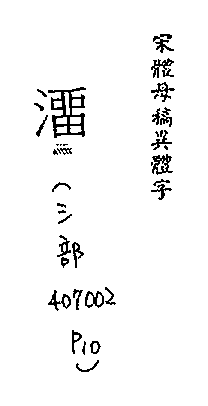 宋體母稿異體字
澑
(氵部
407002
P10)